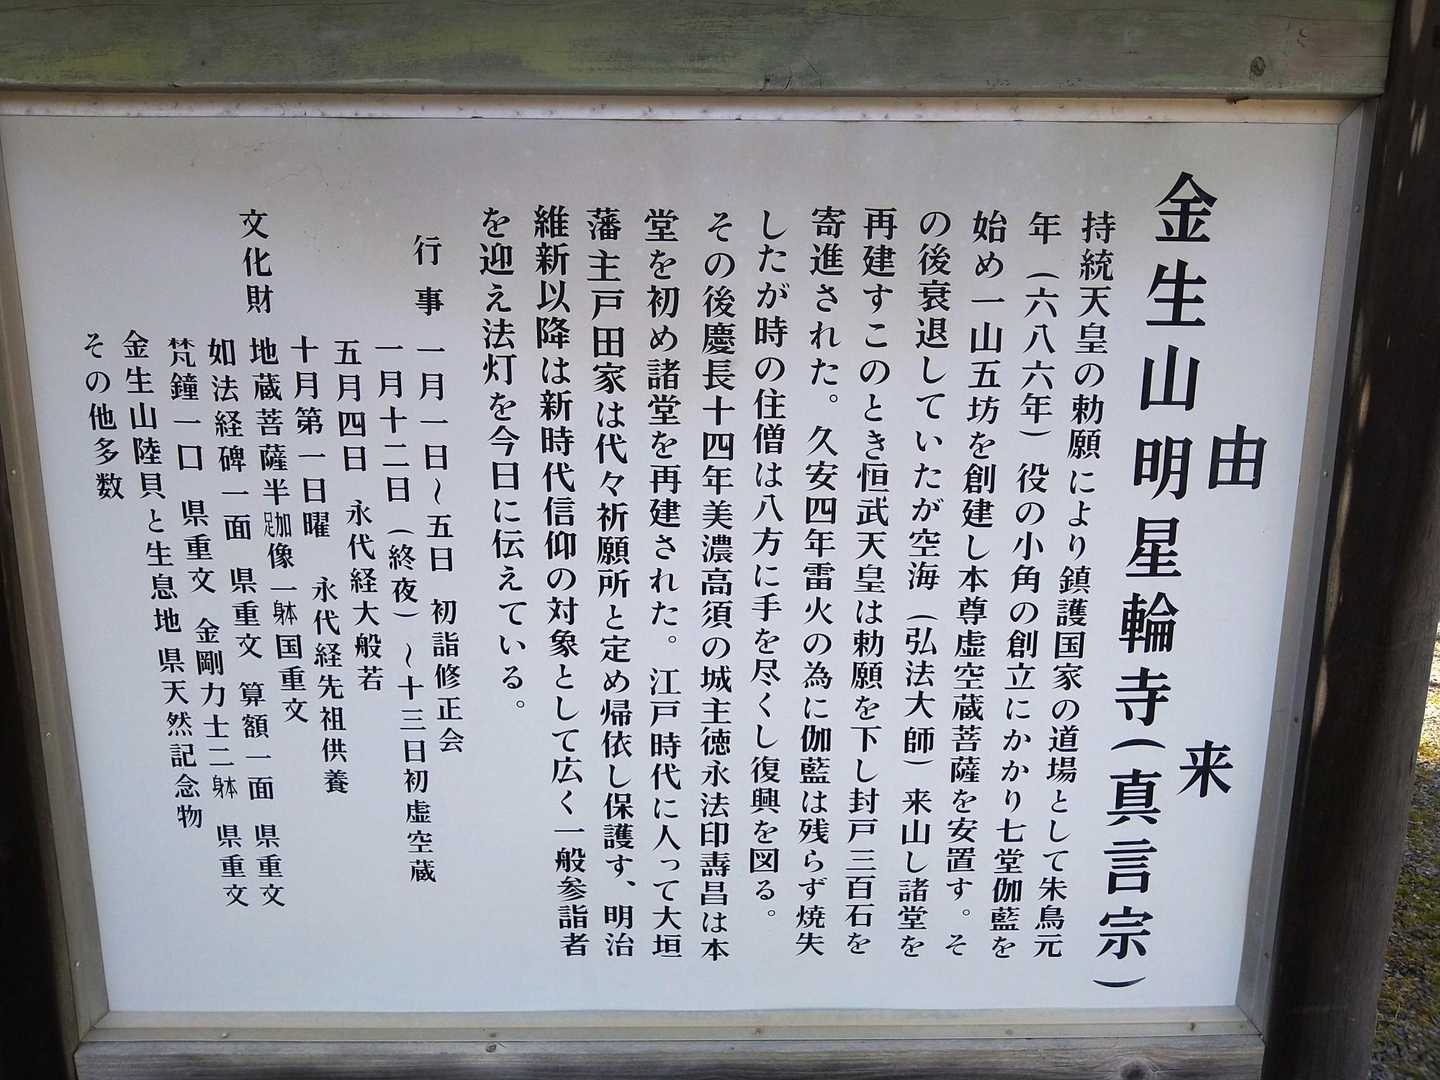 由来
金生山明星輪寺(真言宗)
持統天皇の勅願により鎮護国家の道場として朱鳥元
年(六八六年)役の小角の創立にかかり七堂伽藍を
始め一山五坊を創建し本尊虚空蔵菩薩を安置す。そ
の後衰退していたが空海(弘法大師)来山し諸堂を
再建すこのとき恒武天皇は勅願を下し封戸三百石を
寄進された。久安四年雷火の為に伽藍は残らず焼失
したが時の住僧は八方に手を尽くし復興を図る。
その後慶長十四年美濃高須の城主徳永法印壽昌は本
堂を初め諸堂を再建された。江戸時代に入って大垣
藩主戸田家は代々祈願所と定め帰依し保護す、明治
維新以降は新時代信仰の対象として広く一般参詣者
を迎え法灯を今日に伝えている。
行事 一月一日〜五日 初詣修正会
一月十二日(終夜)〜十三日初虚空蔵
五月四日 永代経大般若
十月第一日曜 永代経先祖供養
文化財 地蔵菩薩半跏像一躰国重文
如法経碑一面 県重文 算額一面 県重文
梵鐘一口 県重文 金剛力士二躰 県重文
金生山陸貝と生息地 県天然記念物
その他多数